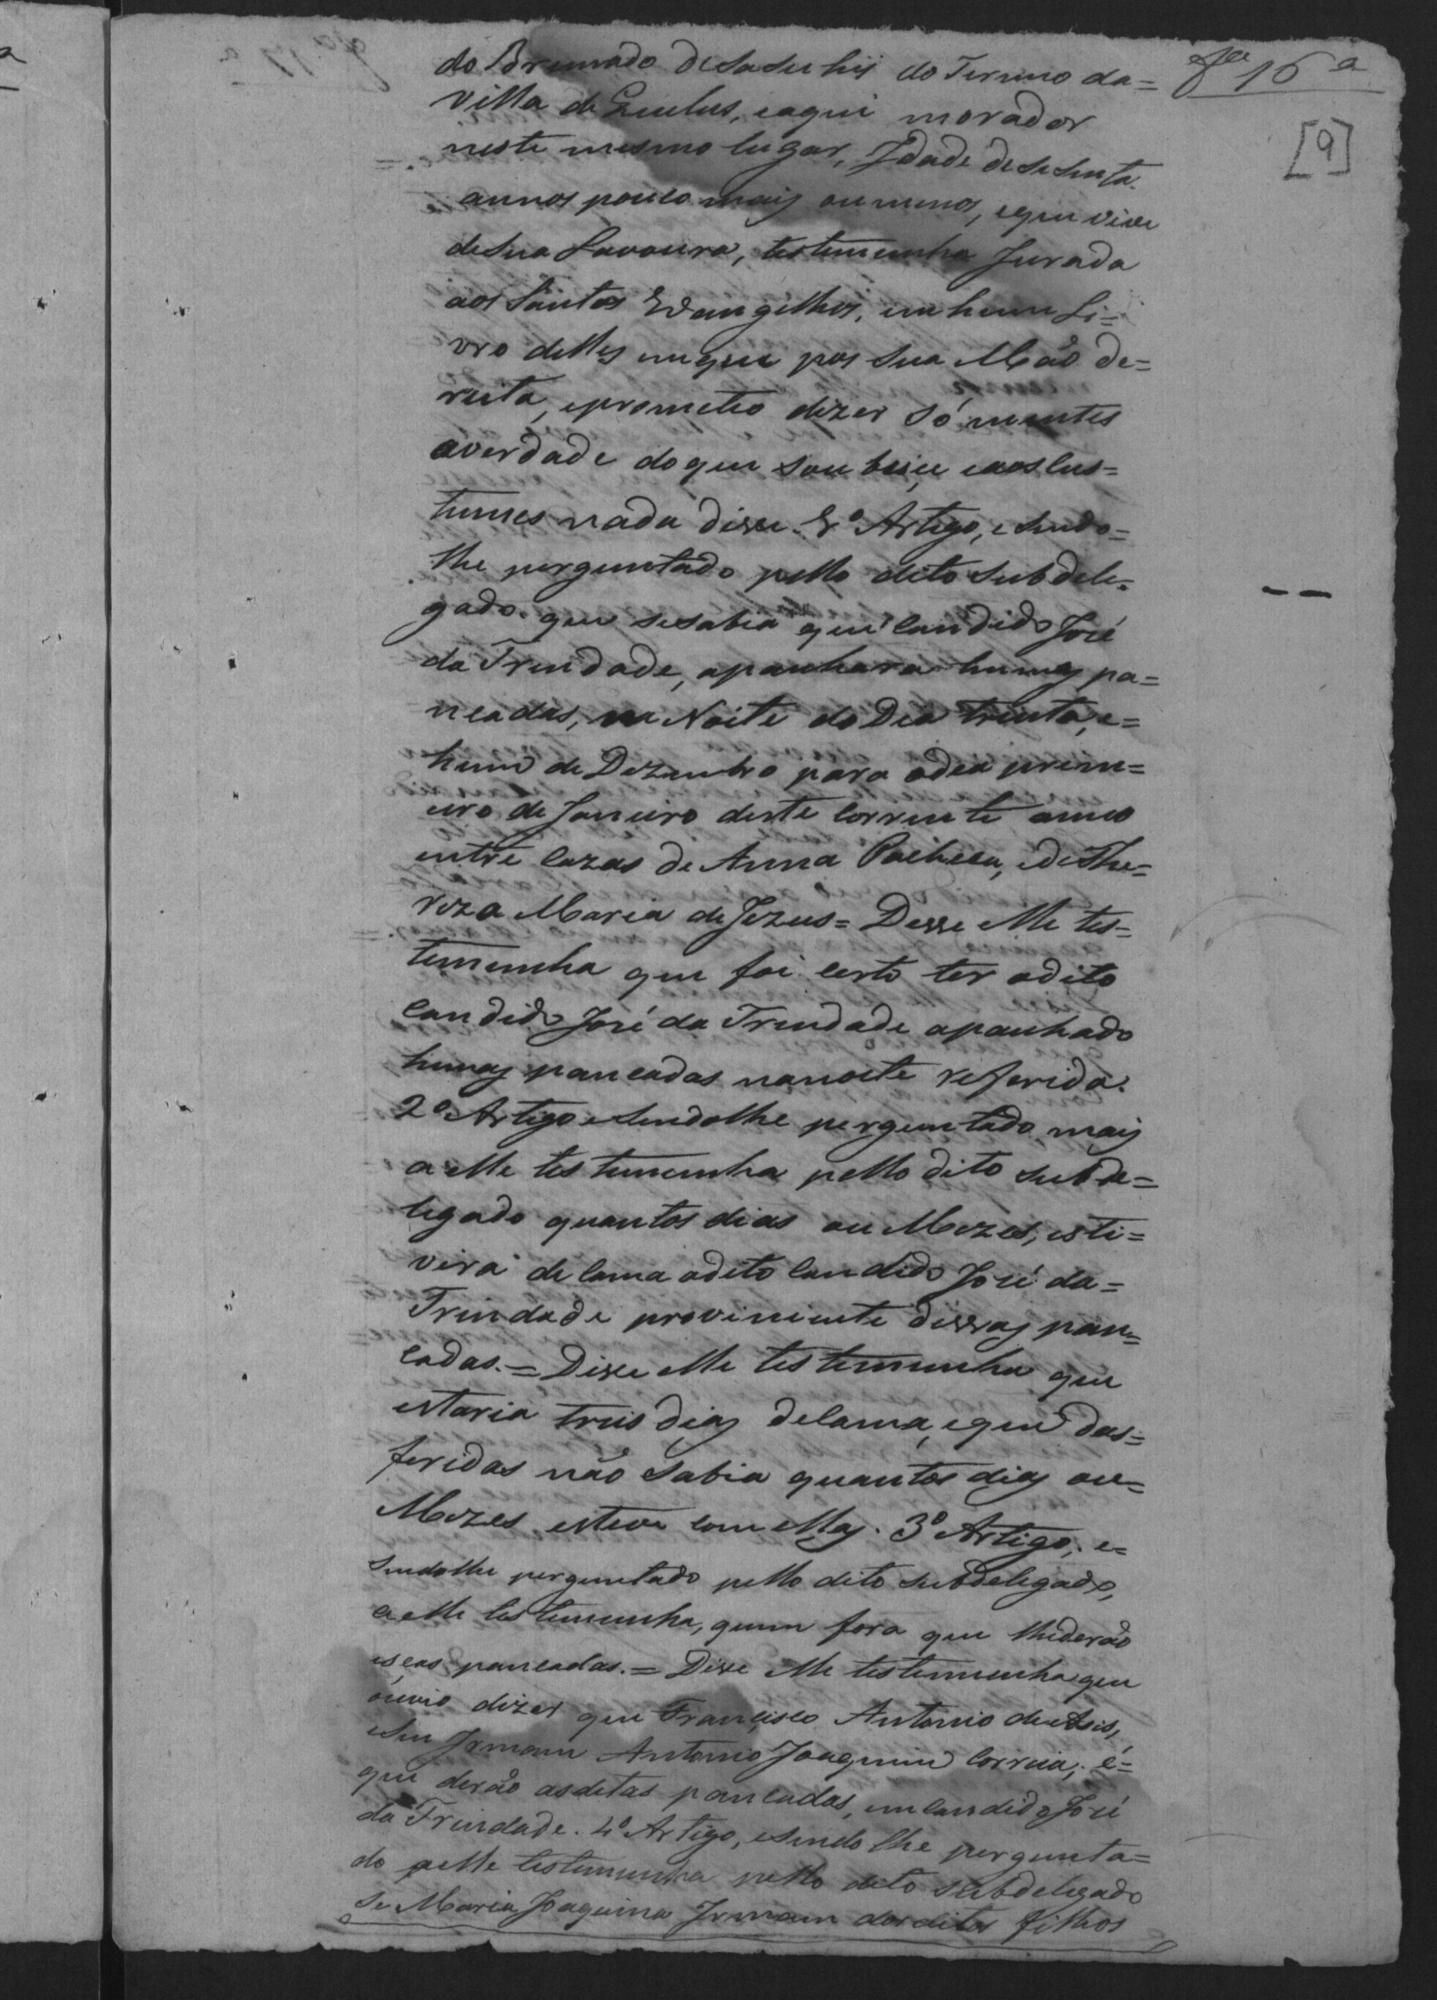 fl. 16 a
[9]
do Brumado de Sasuhi do Termo da=
Villa de Queluz, e aqui morador
neste mesmo lugar, Idade de Sesenta
annos pouco mais ou menos, e que vive
de sua Lavoura, testemunha Jurada
aos Santos Evangelhos, em hum Li=
vro delles em que pos sua Mão de=
reita, e prometeo dizer Sómentes
a verdade do que soubeçe e aos Cus=
tumes nada disse. 1º Artigo, e Sendo=
lhe perguntado pello dito Subdele=
gado. que se sabia que Candido José
da Trindade, apanhara humas pa=
ncadas, na Noite do Dia trinta, e=
hum de Dezembro para o dia prim=
eiro de Janeiro deste corrente anno
entre Cazas de Anna Pacheca, e de The=
reza Maria de Jezus = Disse Elle tes=
temunha que foi certo ter o dito
Candido José da Trindade apanhado
humas pancadas na noite referida.
2º Artigo e Sendolhe perguntado mais
a Elle testemunha pello dito Subde=
legado quantos dias ou Mezes, esti=
vera de Cama o dito Candido José da=
Trindade proviniente dessas pan=
cadas. = Disse Elle testemunha que
estaria treis dias de Cama, e que das=
feridas não Sabia quantos dias ou=
Mezes esteve com Ellas. 3º Artigo, e=
Sendolhe perguntado pello dito Subdelegado,
a elle testemunha, quem fora que lhe derão
essas pancadas. = Disse Elle testemunha que
ouvio dizer que Francisco Antonio de Asis,
e Seu Irmam Antonio Joaquim Correia, é=
que derão as ditas pancadas, em Candido José
da Trindade. 4º Artigo, e Sendo lhe pergunta=
do a elle testemunha pello dito Subdelegado
Se Maria Joaquina Irmam dos ditos filhos